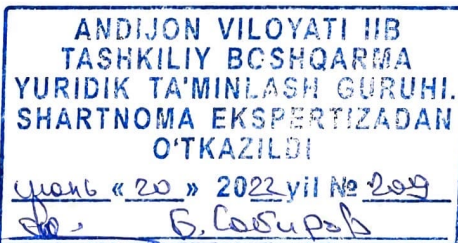 ANDIJON VILOYATI IIB
TASHKILIY BOSHQARMA
YURIDIK TA'MINLASH GURUHI.
SHARTNOMA EKSPERTIZADAN
O'TKAZILDI
июнь « 20 » 2022 yil № 209
Б. Собиров